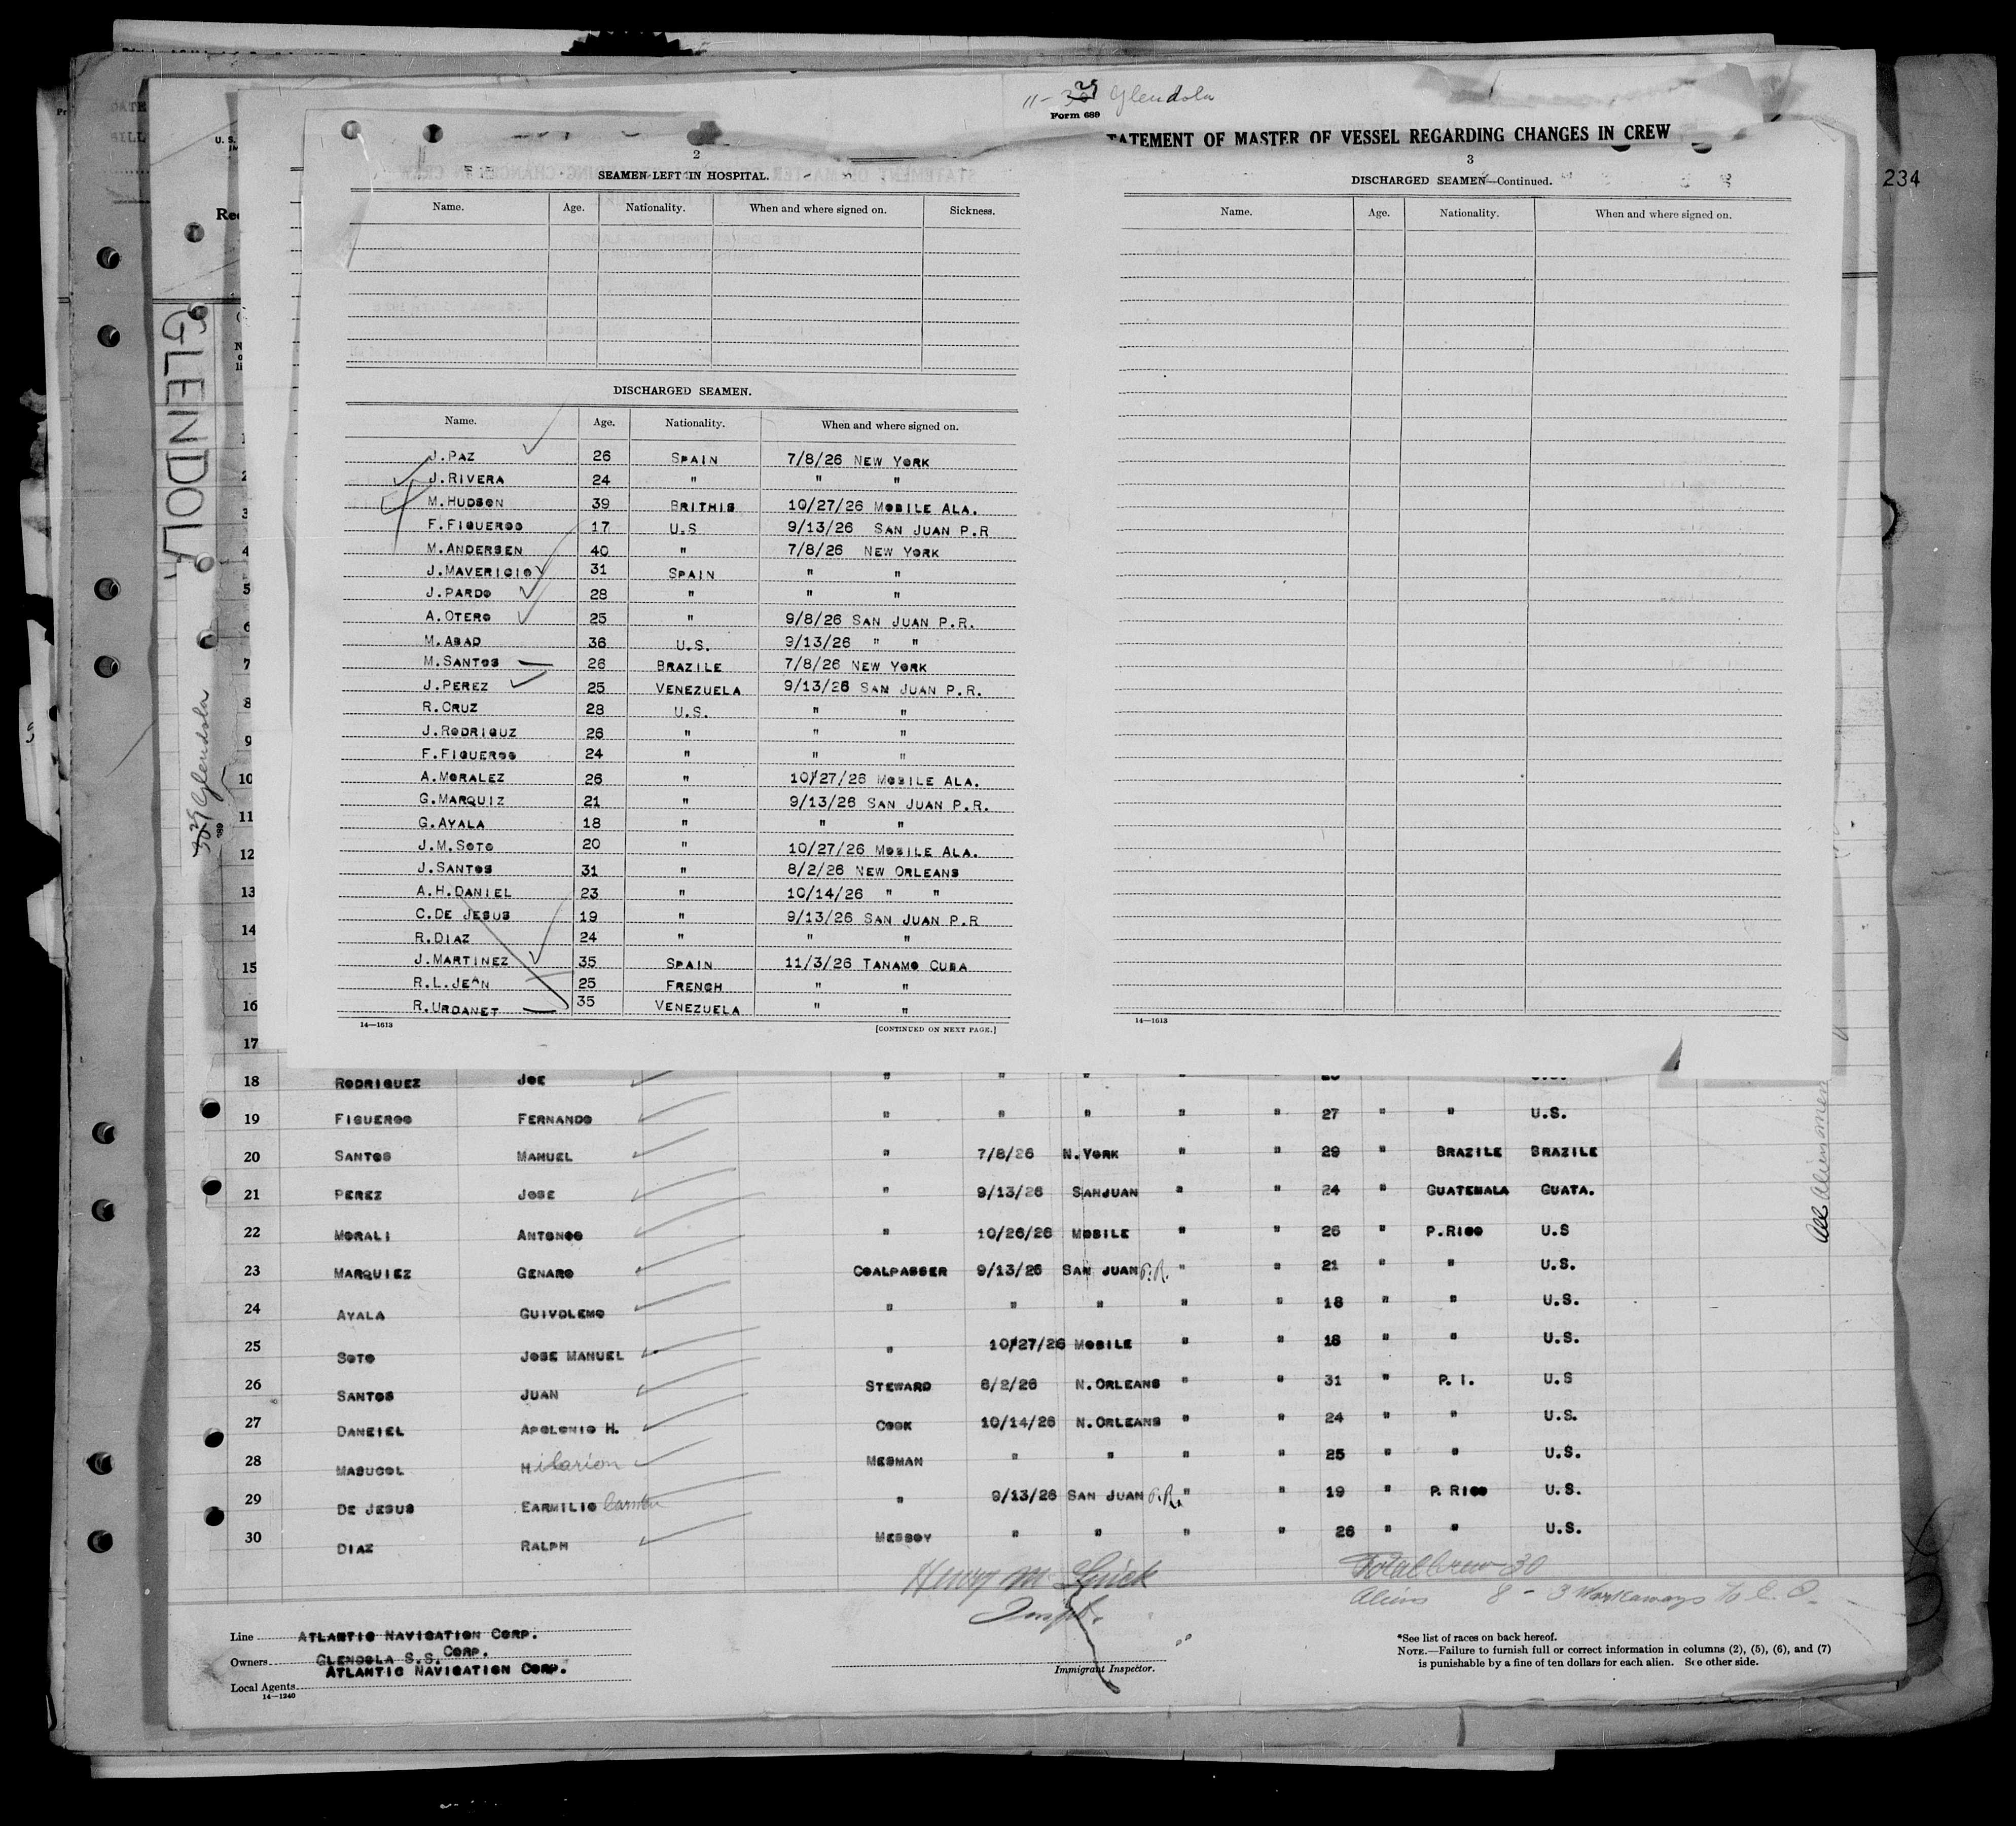 11-29 Glendola
Form 689
STATEMENT OF MASTER OF VESSEL REGARDING CHANGES IN CREW
234
2
SEAMEN LEFT IN HOSPITAL.
Name. Age. Nationality. When and where signed on. Sickness.
DISCHARGED SEAMEN.
Name. Age. Nationality. When and where signed on.
J.PAZ 26 SPAIN 7/8/26 NEW YORK
J.RIVERA 24 " " "
M.HUDSON 39 BRITHIS 10/27/26 MOBILE ALA.
F.FIGUEROO 17 U.S 9/13/26 SAN JUAN P.R
M.ANDERSEN 40 " 7/8/26 NEW YORK
J.MAVERICIO 31 SPAIN " "
J.PARDO 28 " " "
A.OTERO 25 " 9/8/26 SAN JUAN P.R.
M.ABAD 36 U.S. 9/13/26 " "
M.SANTOS 26 BRAZILE 7/8/26 NEW YORK
J.PEREZ 25 VENEZUELA 9/13/26 SAN JUAN P.R.
R.CRUZ 28 U.S. " "
J.RODRIGUZ 26 " " "
F.FIGUEROO 24 " " "
A.MORALEZ 26 " 10/27/26 MOBILE ALA.
G.MARQUIZ 21 " 9/13/26 SAN JUAN P.R.
G.AYALA 18 " " "
J.M.SOTO 20 " 10/27/26 MOBILE ALA.
J.SANTOS 31 " 8/2/26 NEW ORLEANS
A.H.DANIEL 23 " 10/14/26 " "
C.DE JESUS 19 " 9/13/26 SAN JUAN P.R
R.DIAZ 24 " " "
J.MARTINEZ 35 SPAIN 11/3/26 TANAMO CUBA
R.L.JEAN 25 FRENCH " "
R.URDANET 35 VENEZUELA " "
14—1613
[CONTINUED ON NEXT PAGE.]
3
DISCHARGED SEAMEN—Continued.
Name. Age. Nationality. When and where signed on.
14—1613
GLENDOLA
Glendola
U. S.
1
2
3
4
5
6
7
8
9
10
11
12
13
14
15
16
17
18 RODRIGUEZ JOE " " " " "
19 FIGUEROO FERNANDO " " " " " 27 " " U.S.
20 SANTOS MANUEL " 7/8/26 N.YORK " " 29 " BRAZILE BRAZILE
21 PEREZ JOSE " 9/13/26 SANJUAN " " 24 " GUATEMALA GUATA.
22 MORALI ANTONOO " 10/26/26 MOBILE " " 26 " P.RICO U.S
23 MARQUIEZ GENARO COALPASSER 9/13/26 SAN JUAN P.R. " " 21 " " U.S.
24 AYALA GUIVOLEMO " " " " " 18 " " U.S.
25 SOTO JOSE MANUEL " 10/27/26 MOBILE " " 18 " " U.S.
26 SANTOS JUAN STEWARD 8/2/26 N.ORLEANS " " 31 " P.I. U.S
27 DANEIEL APOLONIO H. COOK 10/14/26 N.ORLEANS " " 24 " " U.S.
28 MASUCOL Hilarion MESMAN " " " " 25 " " U.S.
29 DE JESUS EARMILIO Carmen " 9/13/26 SAN JUAN P.R. " " 19 " P.RICO U.S.
30 DIAZ RALPH MESBOY " " " " 26 " " U.S.
All aliens men
Total Crew 30
Aliens 8 - 3 Workaways
Line ATLANTIC NAVIGATION CORP.
Owners GLENDOLA S.S. CORP.
Local Agents ATLANTIC NAVIGATION CORP.
14—1240
Immigrant Inspector.
*See list of races on back hereof.
NOTE.—Failure to furnish full or correct information in columns (2), (5), (6), and (7)
is punishable by a fine of ten dollars for each alien. See other side.